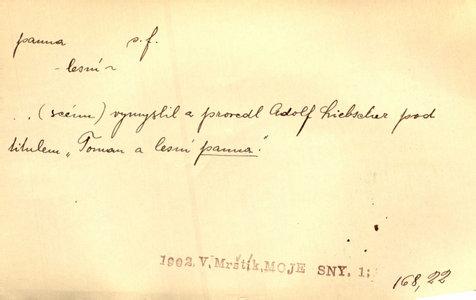 panna s. f.
- lesní ~
. . (scénu) vymyslil a provedl Adolf Liebscher pod
titulem „Toman a lesní panna".
1902. V. Mrštík, MOJE SNY. 1;
168, 22